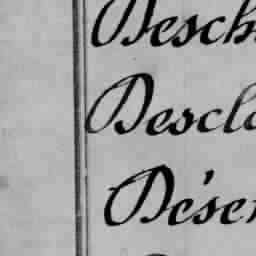 Desch
Descla
Déser